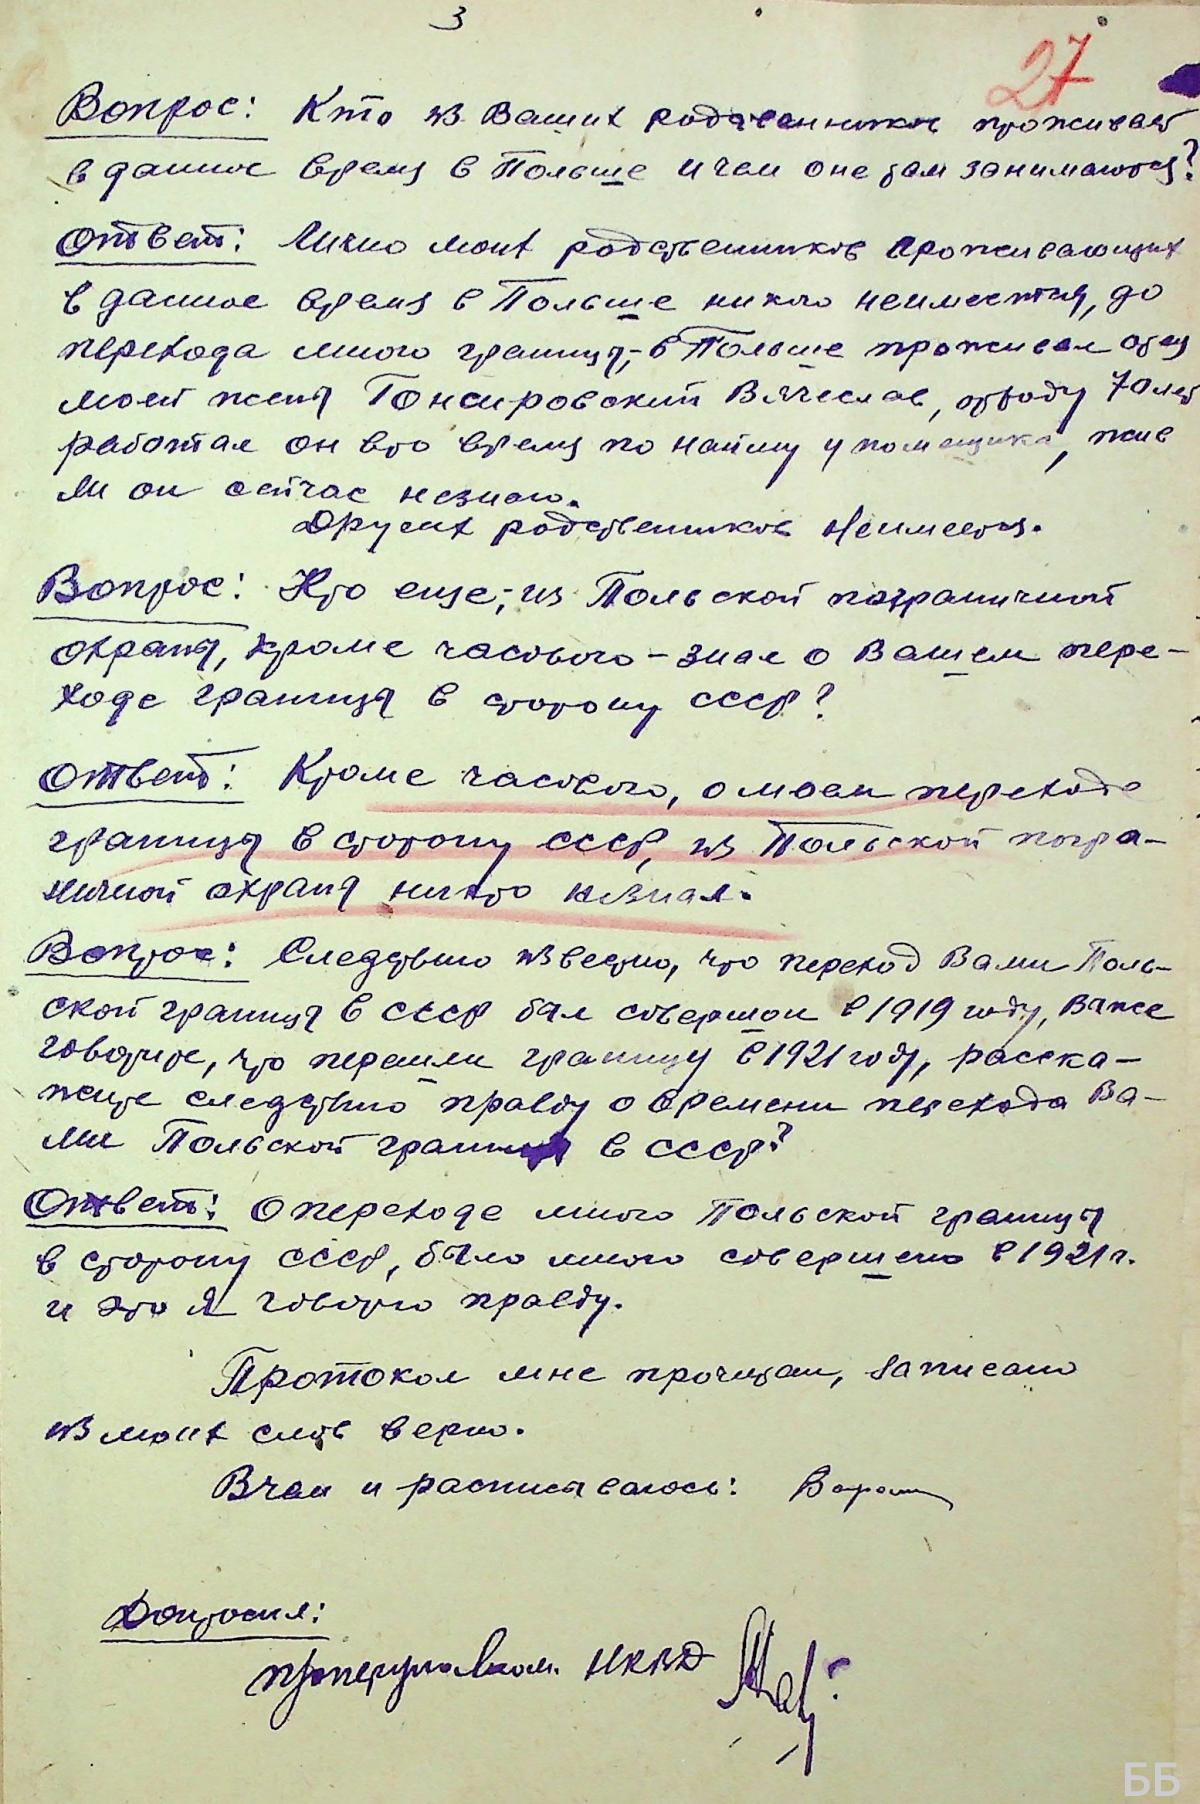 3
27
Вопрос: Кто из Ваших родственников проживает
в данное время в Польше и чем они там занимаются?
Ответ: Лично моих родственников проживающих
в данное время в Польше никого неимеется, до
перехода мною границы, в Польше проживал отец
моей жены Гонсировский Вячеслав, отроду 70 лет
работал он вто время по найму у помещика, жив
ли он сейчас незнаю.
Других родственников неимеется.
Вопрос: Кто еще, из Польской пограничной
охраны, кроме часового – знал о Вашем пере-
ходе границы в сторону СССР?
Ответ: Кроме часового, о моем переходе
границы в сторону СССР, из Польской погра-
ничной охраны никто незнал.
Вопрос: Следствию известно, что переход Вами Поль-
ской границы в СССР был совершон в 1919 году, Выже
говорите, что перешли границу в 1921 году, расска-
жите следствию правду о времени перехода Ва-
ми Польской границы в СССР?
Ответ: О переходе мною Польской границы
в сторону СССР, было мною совершено в 1921 г.
и это я говорю правду.
Протокол мне прочитан, записано
из моих слов верно.
В чем и расписываюсь:
Допросил:
НКВД
ББ